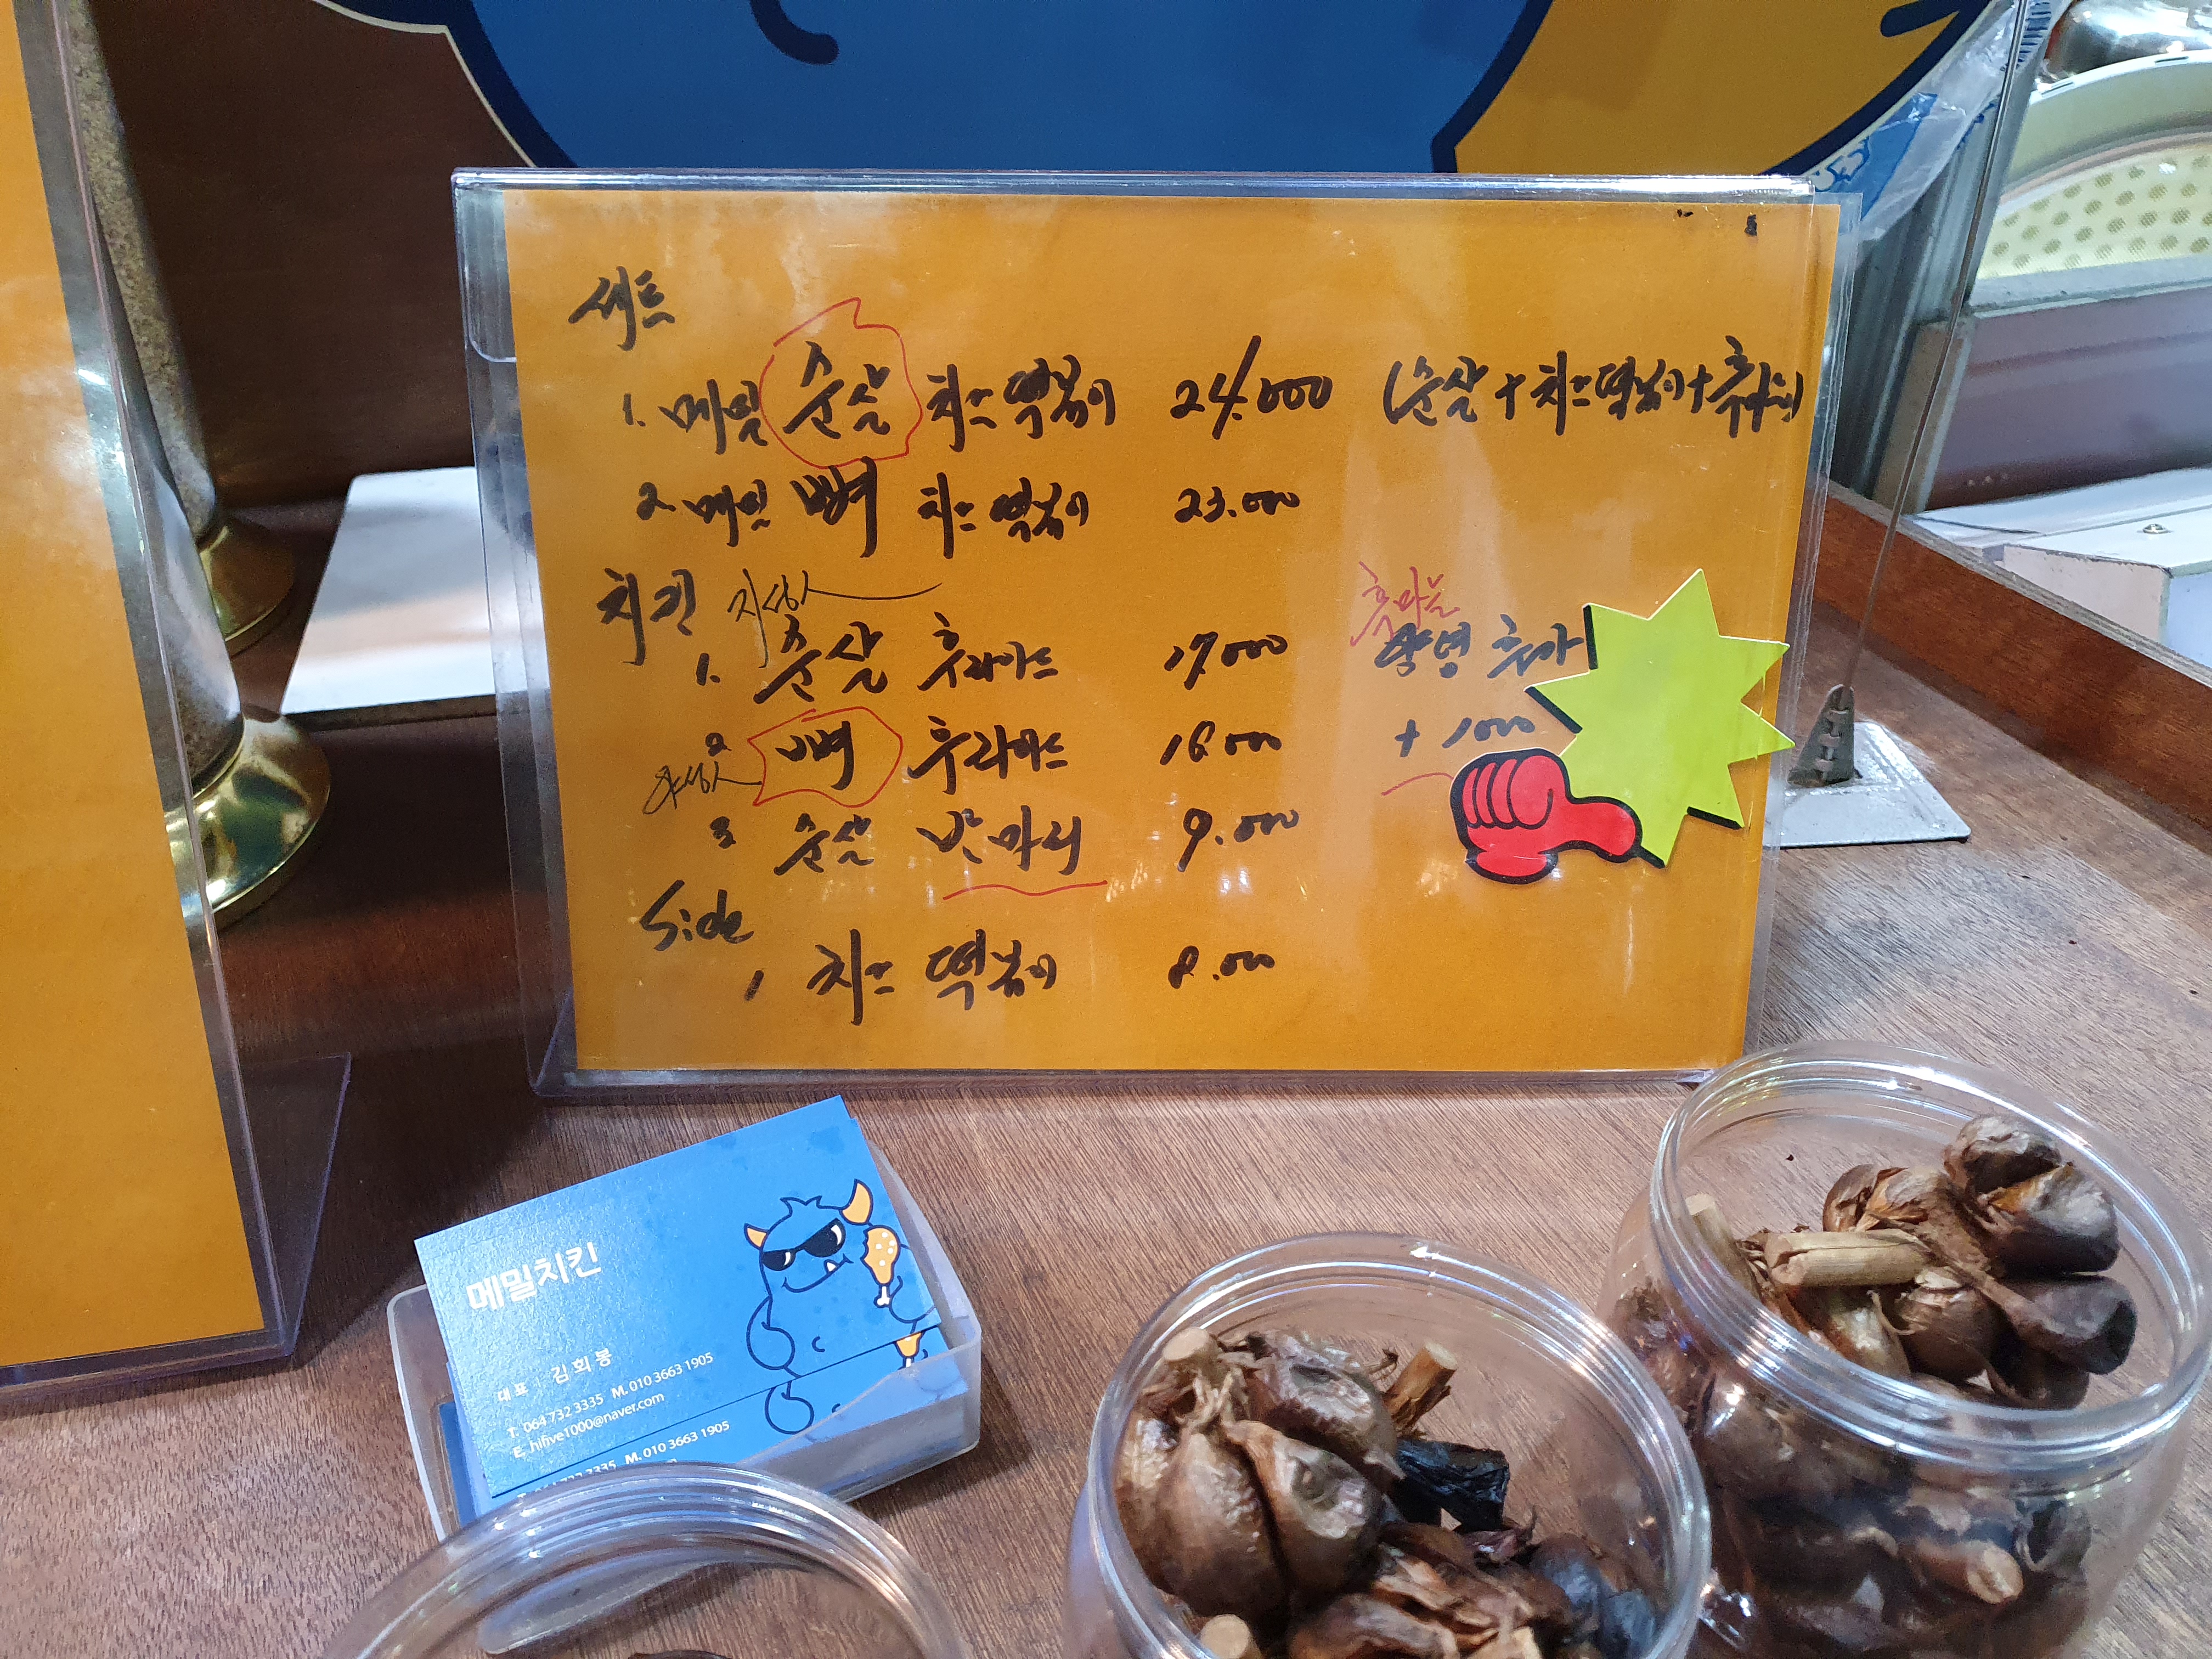 세트
1. 메밀 순살 치즈떡볶이 24.000 (순살+치즈떡볶이+후라이)
2. 메밀 뼈 치즈떡볶이 23.000
치킨
흑마늘
1. 순살 후라이드 17.000 양념 추가
2 뼈 후라이드 16000 + 1000
3 순살 반마리 9.000
Side
1 치즈 떡볶이 8.000
메밀치킨
대표 김희봉
T. 064 732 3335 M. 010 3663 1905
E. hifive1000@naver.com
3335 M. 010 3663 1905